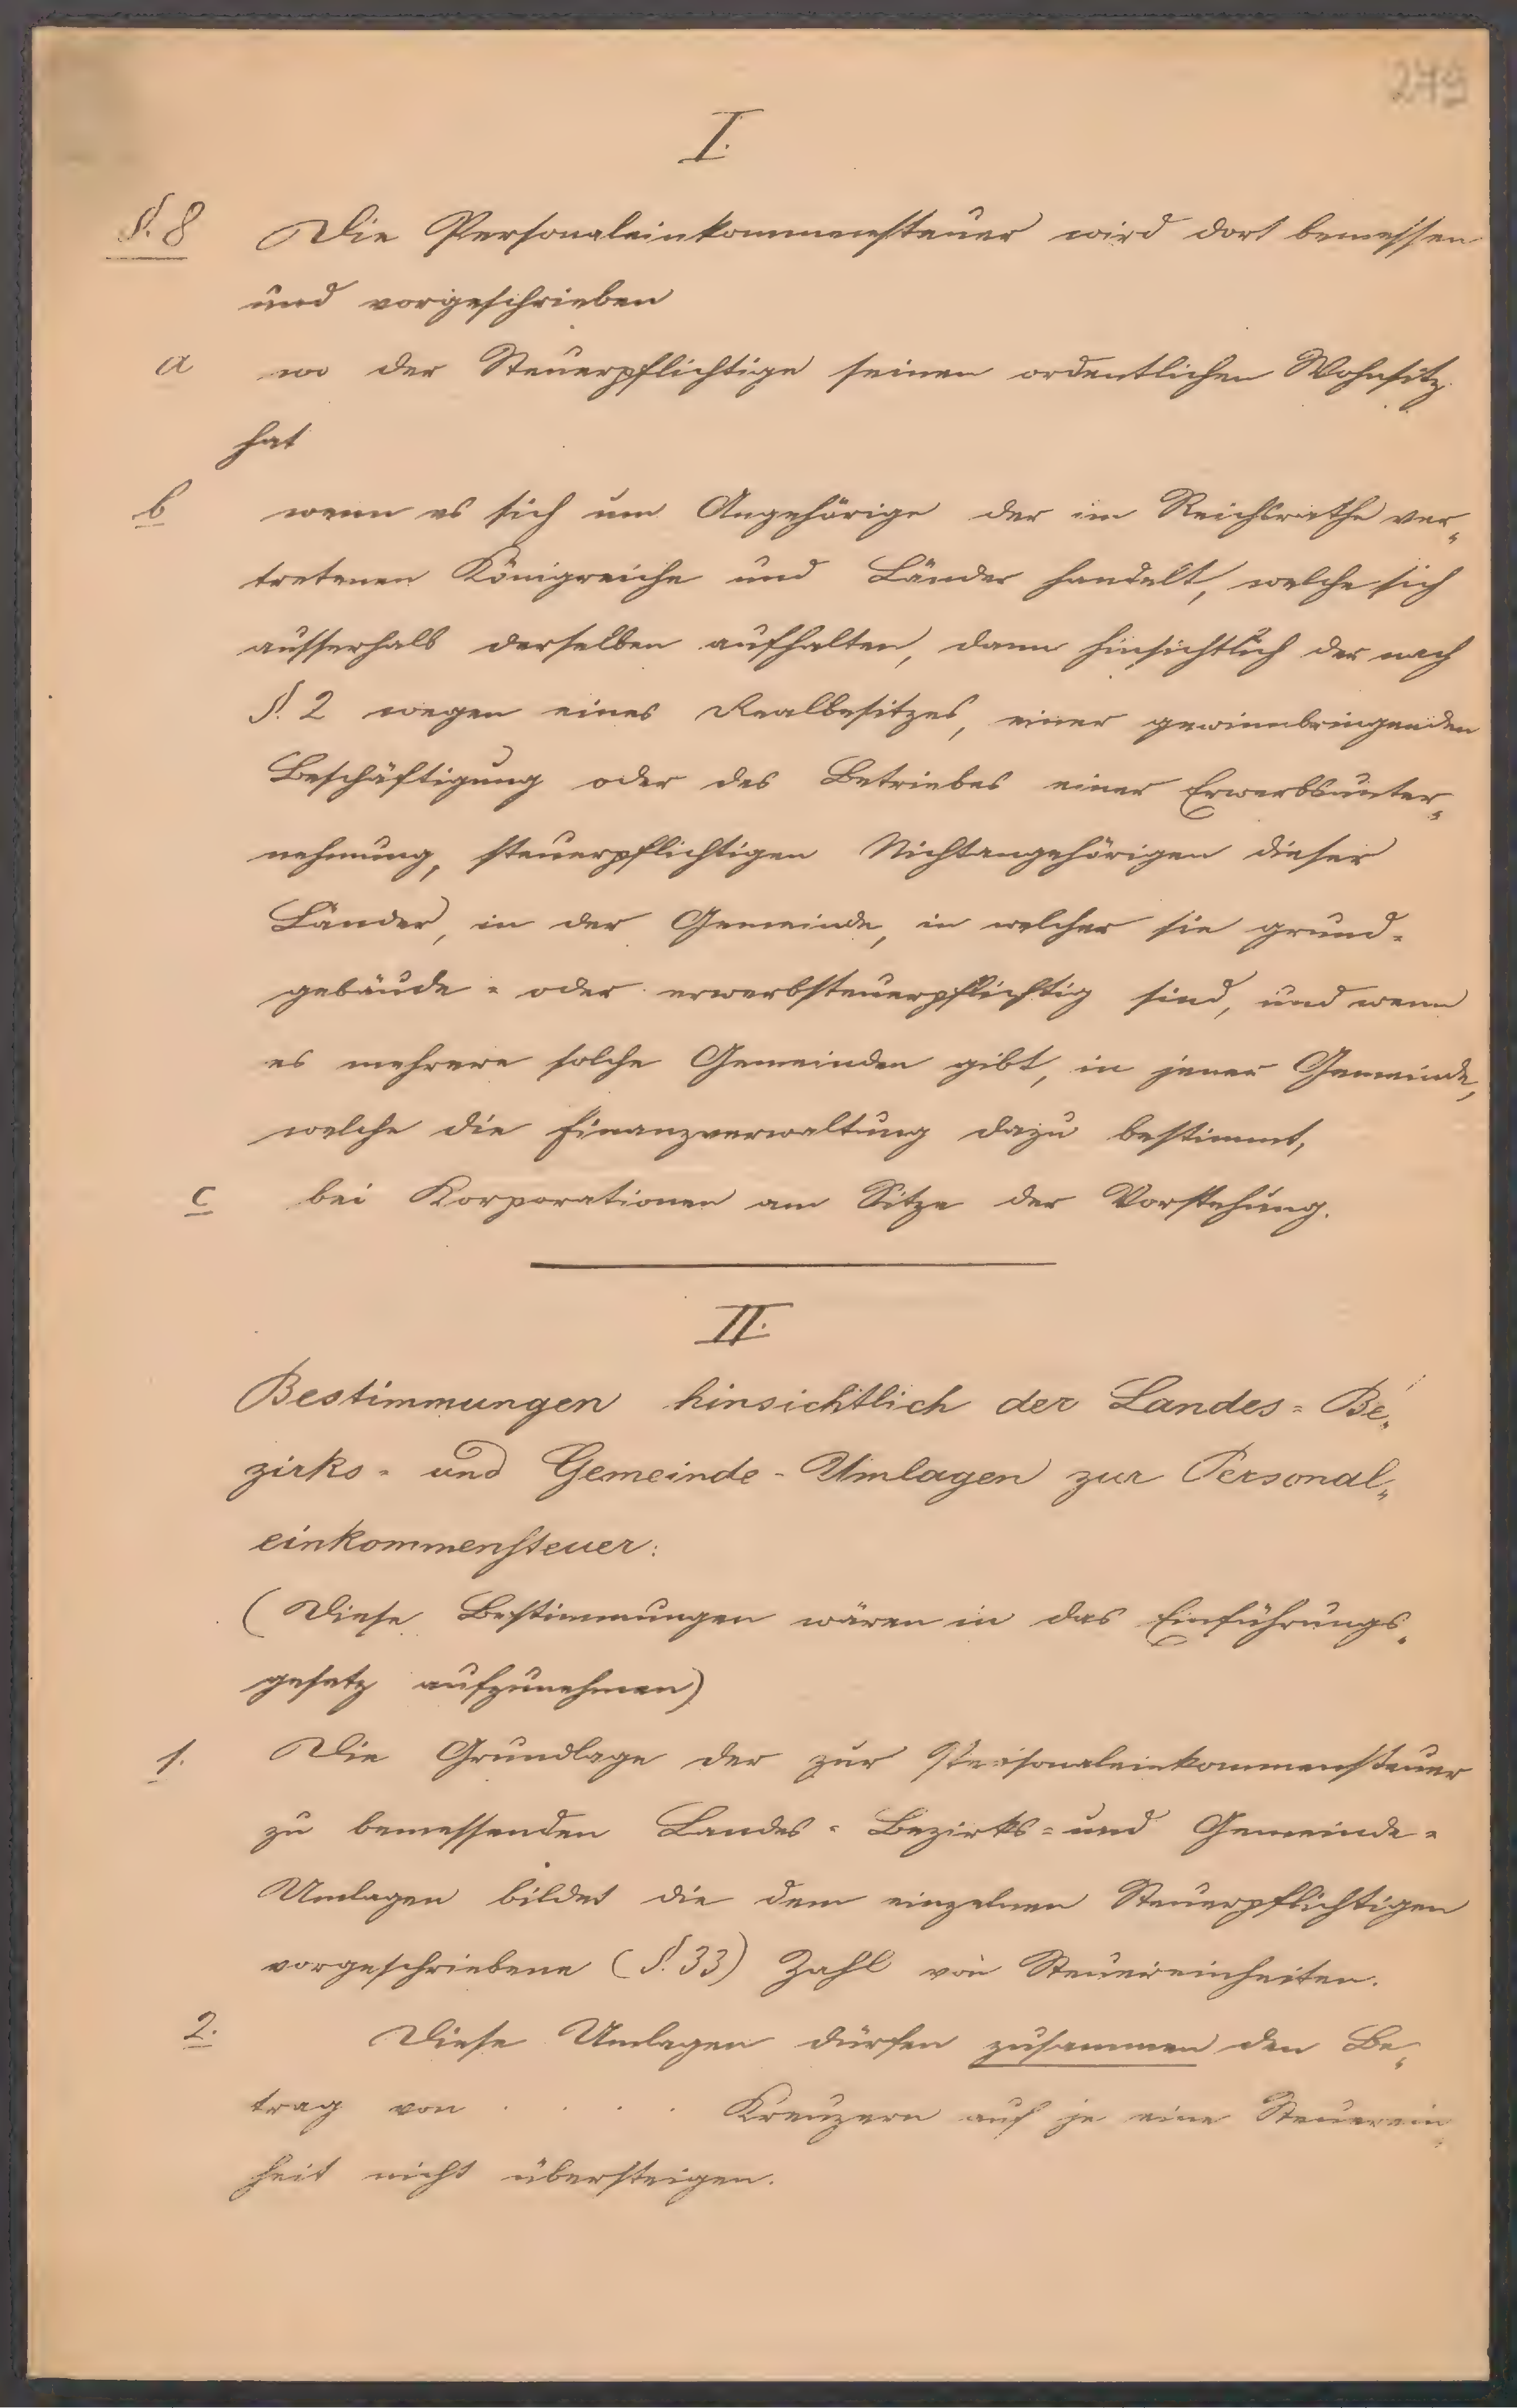 279
I.
§. 8 Die Personaleinkommensteuer wird dort bemessen
und vorgeschrieben
a wo der Steuerpflichtige seinen ordentlichen Wohnsitz
hat
b wenn es sich um Angehörige der im Reichsrathe ver„
tretenen Königreiche und Länder handelt, welche sich
ausserhalb derselben aufhalten, dann hinsichtlich der nach
§. 2 wegen eines Realbesitzes, einer gewinnbringenden
Beschäftigung oder des Betriebes einer Erwerbsunter„
nehmung, steuerpflichtigen Nichtangehörigen dieser
Länder, in der Gemeinde, in welcher sie grund=
gebäude= oder erwerbsteuerpflichtig sind, und wenn
es mehrere solche Gemeinden gibt, in jener Gemeinde,
welche die Finanzverwaltung dazu bestimmt,
c bei Korporationen am Sitze der Vorstehung.
II.
Bestimmungen hinsichtlich der Landes= Be„
zirks= und Gemeinde-Umlagen zur Personal„
einkommensteuer:
(Diese Bestimmungen wären in das Einführungs„
gesetz aufzunehmen)
1. Die Grundlage der zur Personaleinkommensteuer
zu bemessenden Landes= Bezirks= und Gemeinde=
Umlagen bildet die dem einzelnen Steuerpflichtigen
vorgeschriebene (§. 33) Zahl von Steuereinheiten.
2. Diese Umlagen dürfen zusammen den Be„
trag von . . . . Kreuzern auf je eine Steuerein„
heit nicht übersteigen.